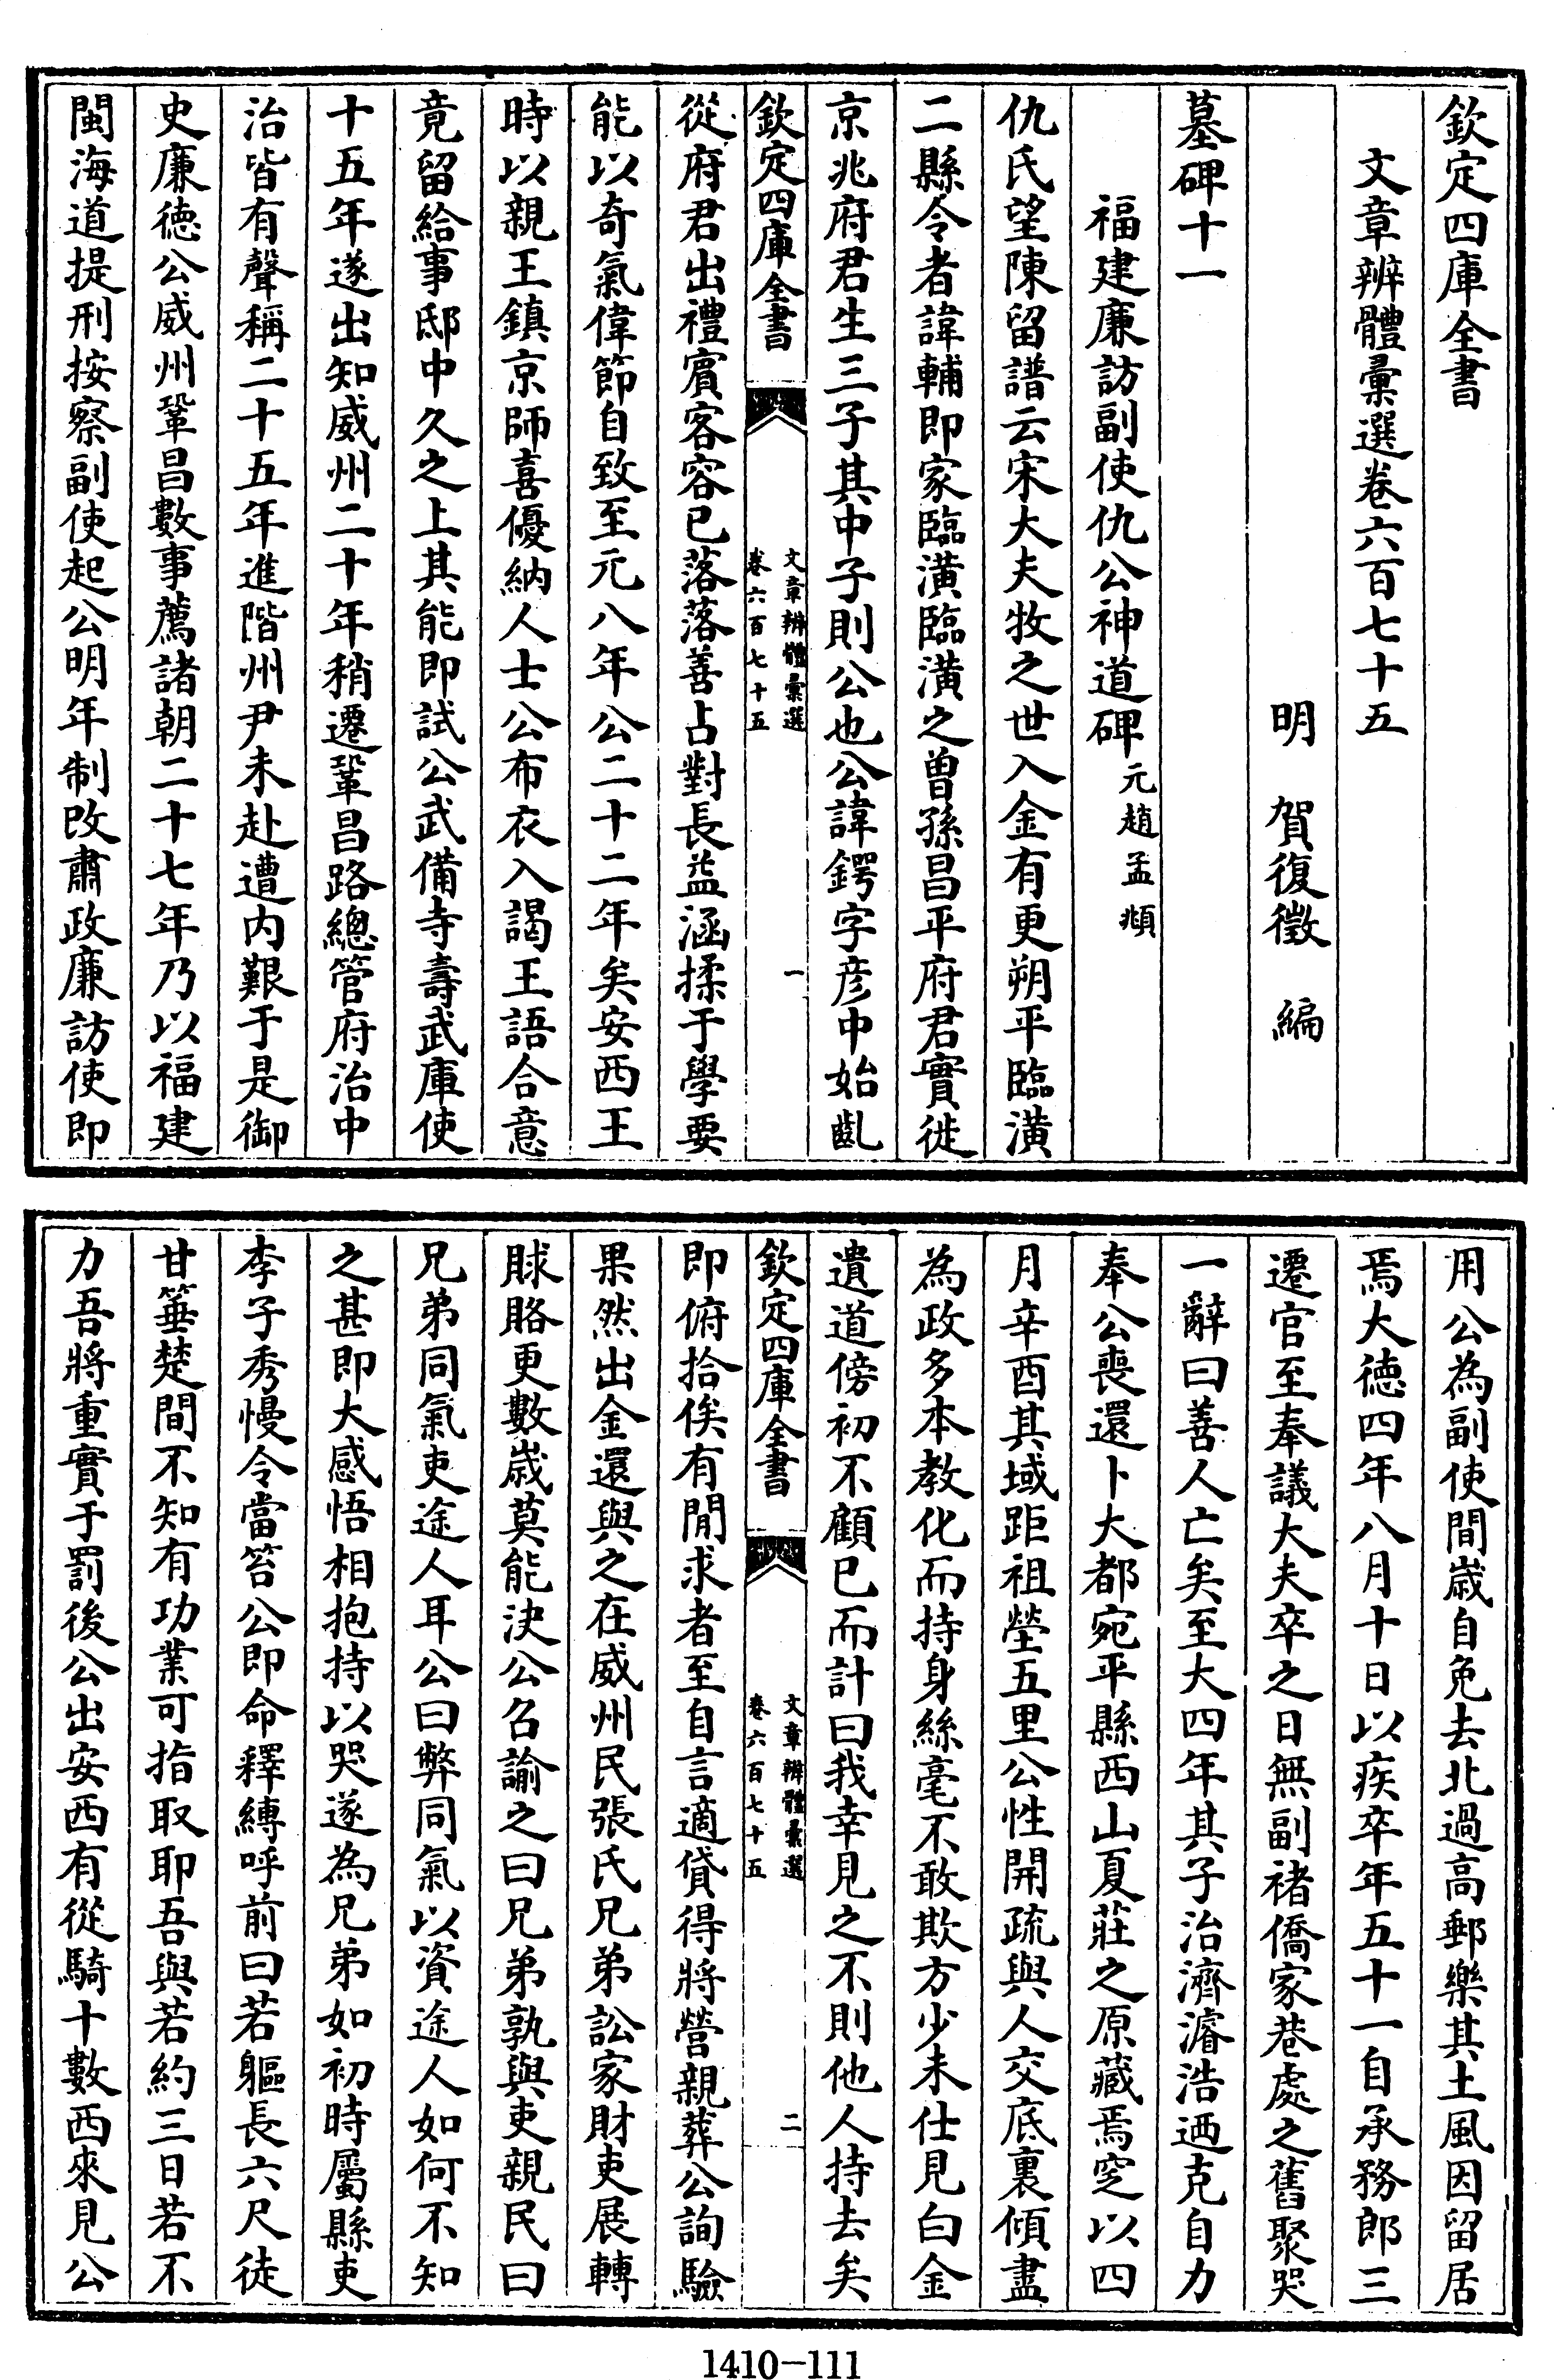 欽定四庫全書
文章辨體彙選卷六百七十五
明　賀復徵　編
墓碑十一
福建廉訪副使仇公神道碑元趙孟頫
仇氏望陳留譜云宋大夫牧之世入金有更朔平臨潢
二縣令者諱輔即家臨潢臨潢之曾孫昌平府君實徙
京兆府君生三子其中子則公也公諱鍔字彦中始齔
欽定四庫全書
文章辨體彙選
卷六百七十五
一
從府君出禮賓客容已落落善占對長益涵揉于學要
能以奇氣偉節自致至元八年公二十二年矣安西王
時以親王鎮京師喜優納人士公布衣入謁王語合意
竟留給事邸中久之上其能即試公武備寺壽武庫使
十五年遂出知威州二十年稍遷鞏昌路總管府治中
治皆有聲稱二十五年進階州尹未赴遭内艱于是御
史廉德公威州鞏昌數事薦諸朝二十七年乃以福建
閩海道提刑按察副使起公明年制改肅政廉訪使即
用公為副使間歲自免去北過高郵樂其土風因留居
焉大德四年八月十日以疾卒年五十一自承務郎三
遷官至奉議大夫卒之日無副褚僑家巷處之舊聚哭
一辭曰善人亡矣至大四年其子治濟濬浩迺克自力
奉公喪還卜大都宛平縣西山夏莊之原藏焉窆以四
月辛酉其域距祖塋五里公性開疏與人交底裏傾盡
為政多本教化而持身絲毫不敢欺方少未仕見白金
遺道傍初不顧已而計曰我幸見之不則他人持去矣
欽定四庫全書
文章辨體彙選
卷六百七十五
二
即俯拾俟有閒求者至自言適貸得將營親葬公詢驗
果然出金還與之在威州民張氏兄弟訟家財吏展轉
賕賂更數歲莫能決公召諭之曰兄弟孰與吏親民曰
兄弟同氣吏途人耳公曰弊同氣以資途人如何不知
之甚即大感悟相抱持以哭遂為兄弟如初時屬縣吏
李子秀慢令當笞公即命釋縛呼前曰若軀長六尺徒
甘箠楚間不知有功業可指取耶吾與若約三日若不
力吾將重實于罰後公出安西有從騎十數西來見公
1410-111